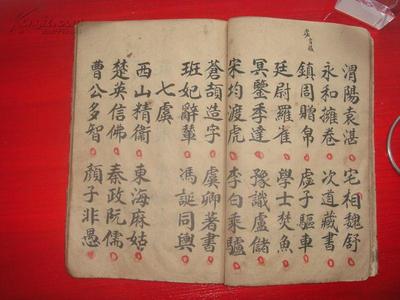 渭陽袁湛 宅相魏舒
永和擁卷 次道藏書
鎮周贈帛 虛子驅車
廷尉羅雀 學士焚魚
冥鑒季達 豫識盧儲
宋均渡虎 李白乘驢
蒼頡造字 虞卿著書
班妃辭輦 馮誕同輿
七虞
西山精衛 東海麻姑
楚英信佛 秦政阮儒
曹公多智 顏子非愚